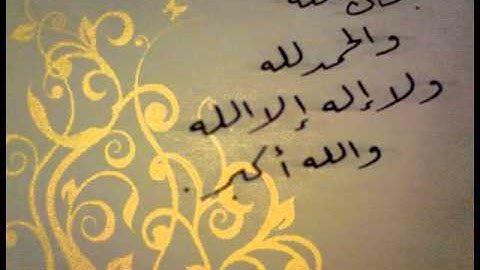 والحمد لله
ولا إله إلا الله
والله أكبر.